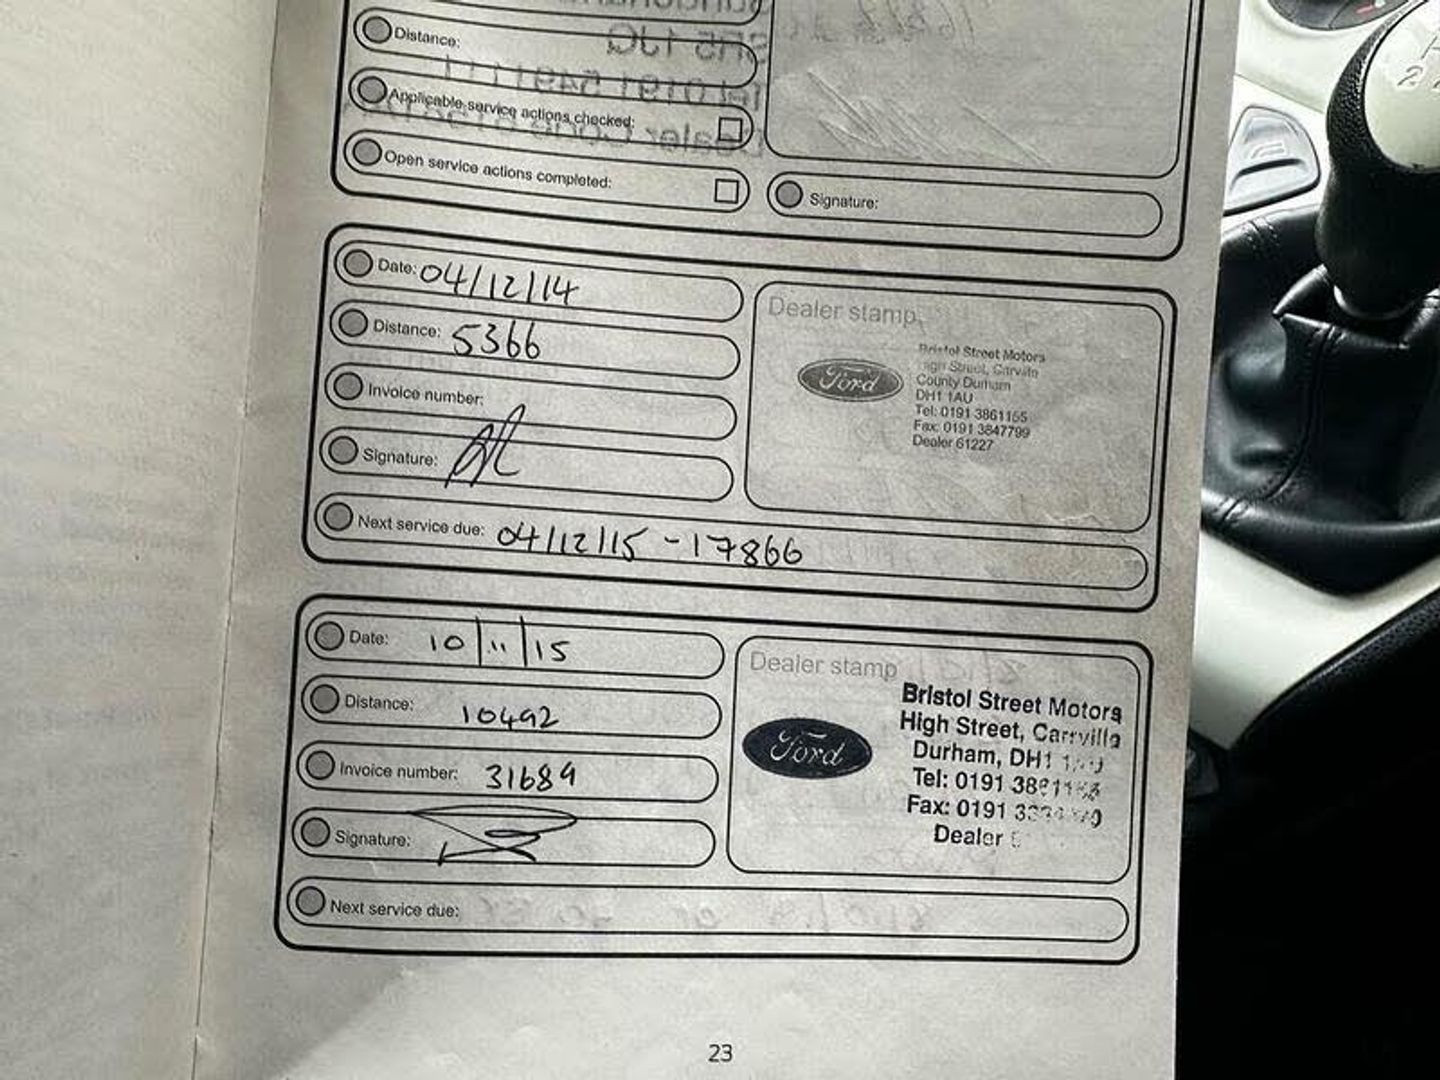 SR5 1JQ
Distance:
Tel 0191 5491111
Applicable service actions checked:
Dealer Code
Open service actions completed:
Signature:
Date: 04/12/14
Distance: 5366
Invoice number:
Signature:
Next service due: 04/12/15 - 17866
Dealer stamp
Ford
Bristol Street Motors
High Street, Carville
County Durham
DH1 1AU
Tel: 0191 3861155
Fax: 0191 3847799
Dealer 61227
Date: 10/11/15
Distance: 10492
Invoice number: 31689
Signature:
Next service due:
Dealer stamp
Ford
Bristol Street Motors
High Street, Carrville
Durham, DH1
Tel: 0191
Fax: 0191
Dealer
23
2